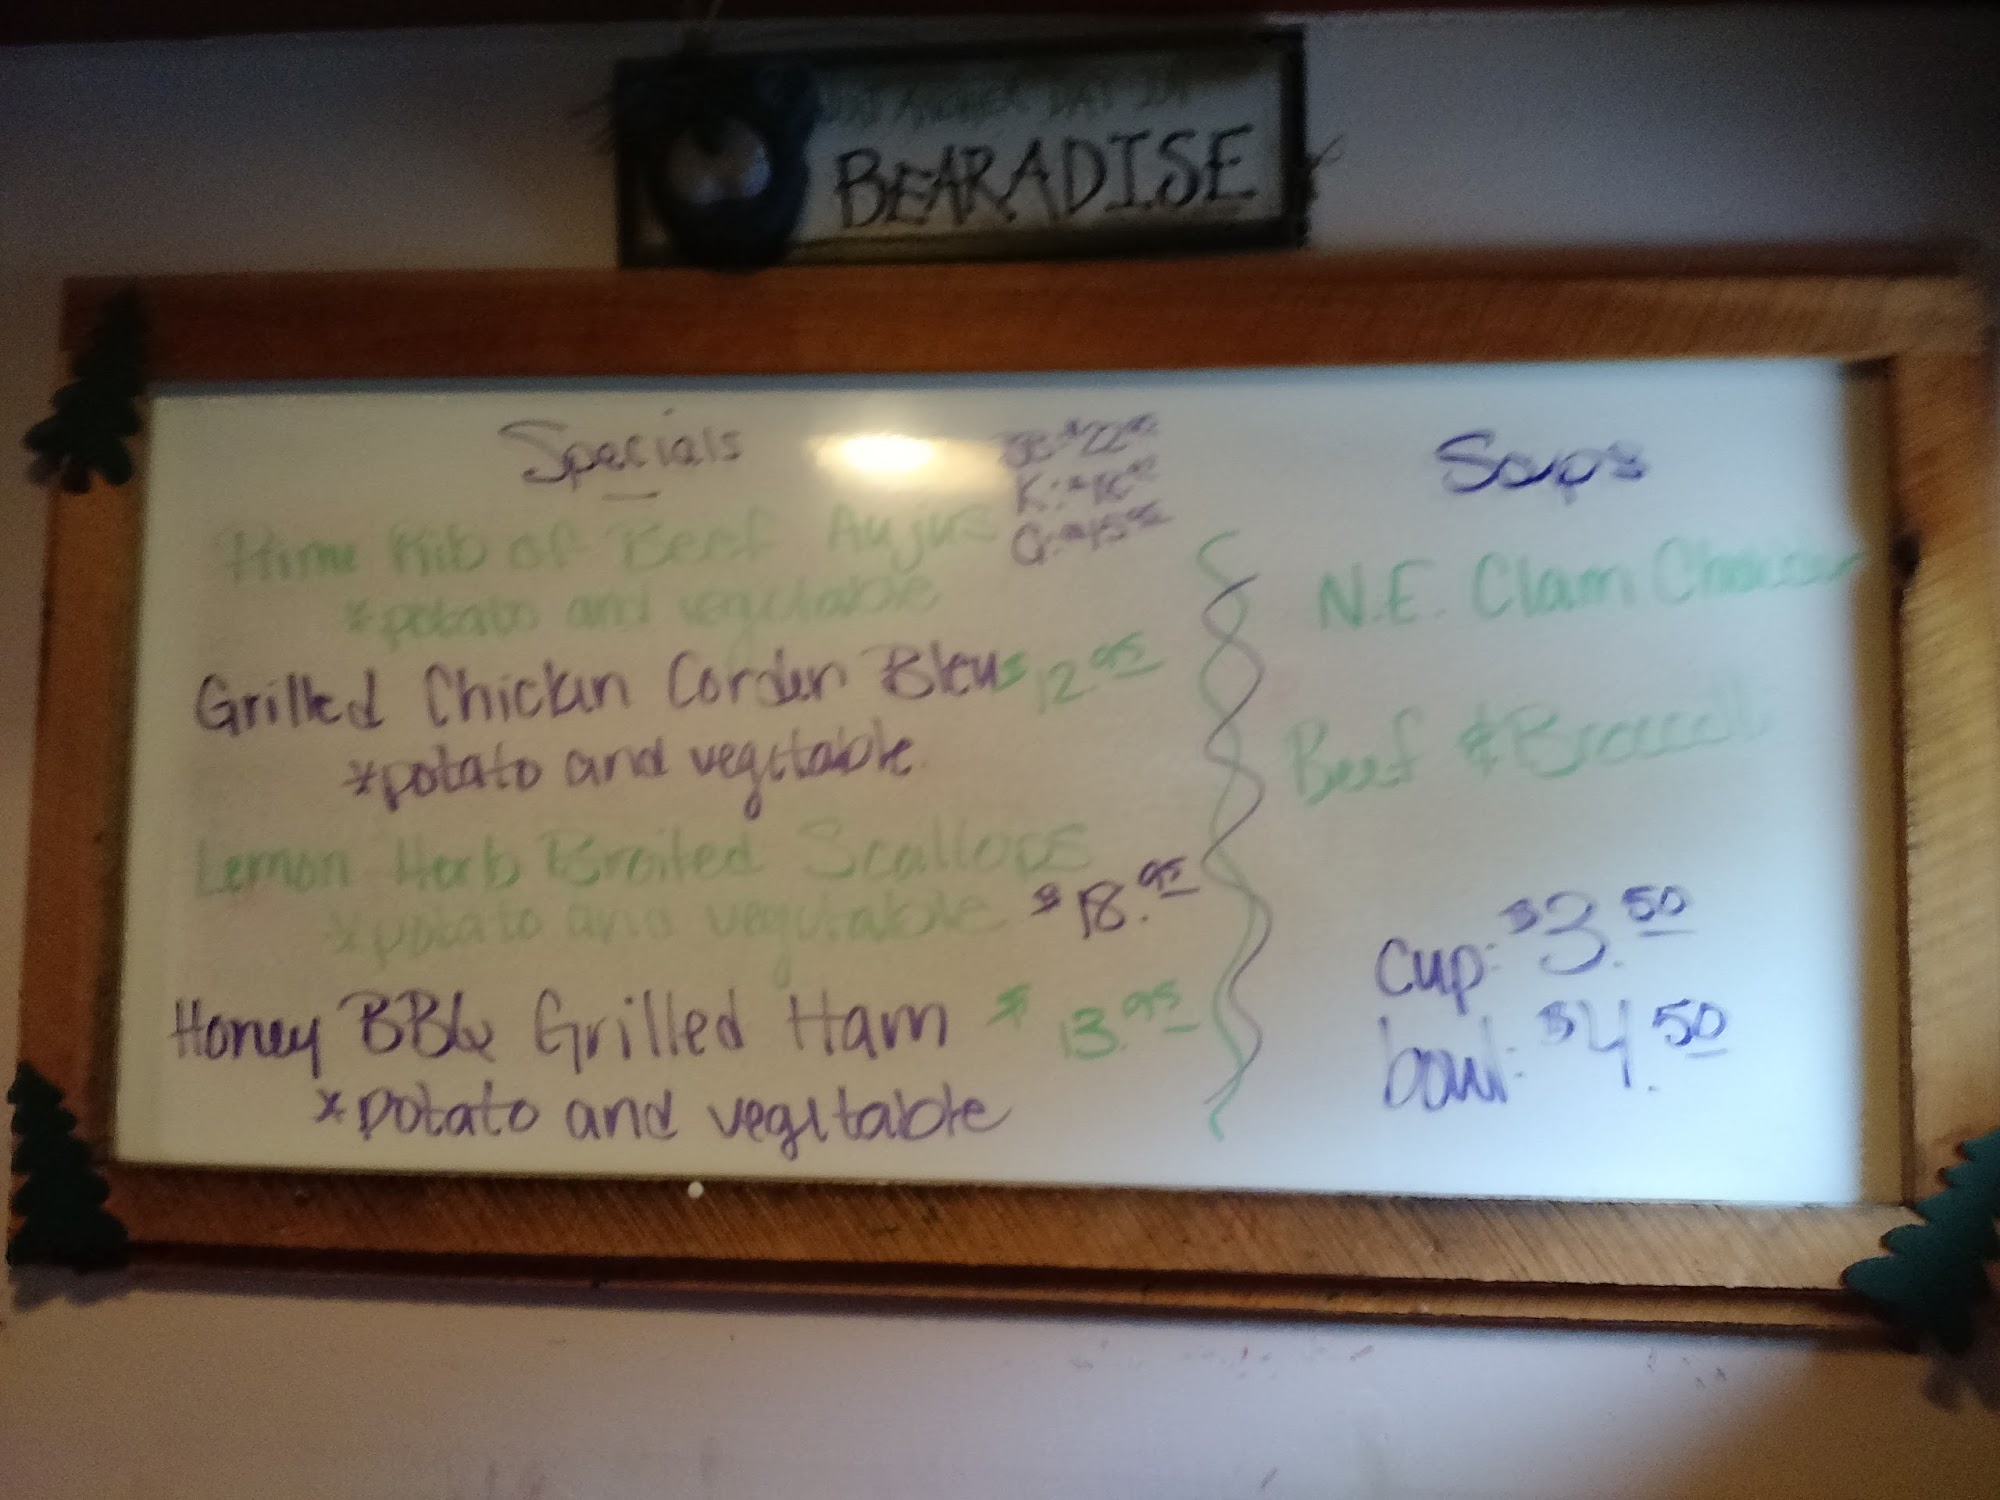 JUST ANOTHER DAY IN
BEARADISE
Specials
$22.95
K:
Q: $15.95
Prime Rib of Beef Aujus
*potato and vegetable
Grilled Chicken Corden Bleu $12.95
*potato and vegetable
Lemon Herb Broiled Scallops
*potato and vegetable $18.95
Honey BBQ Grilled Ham $13.95
*potato and vegetable
Soups
N.E. Clam Chowder
Beef & Broccoli
cup: $3.50
bowl: $4.50